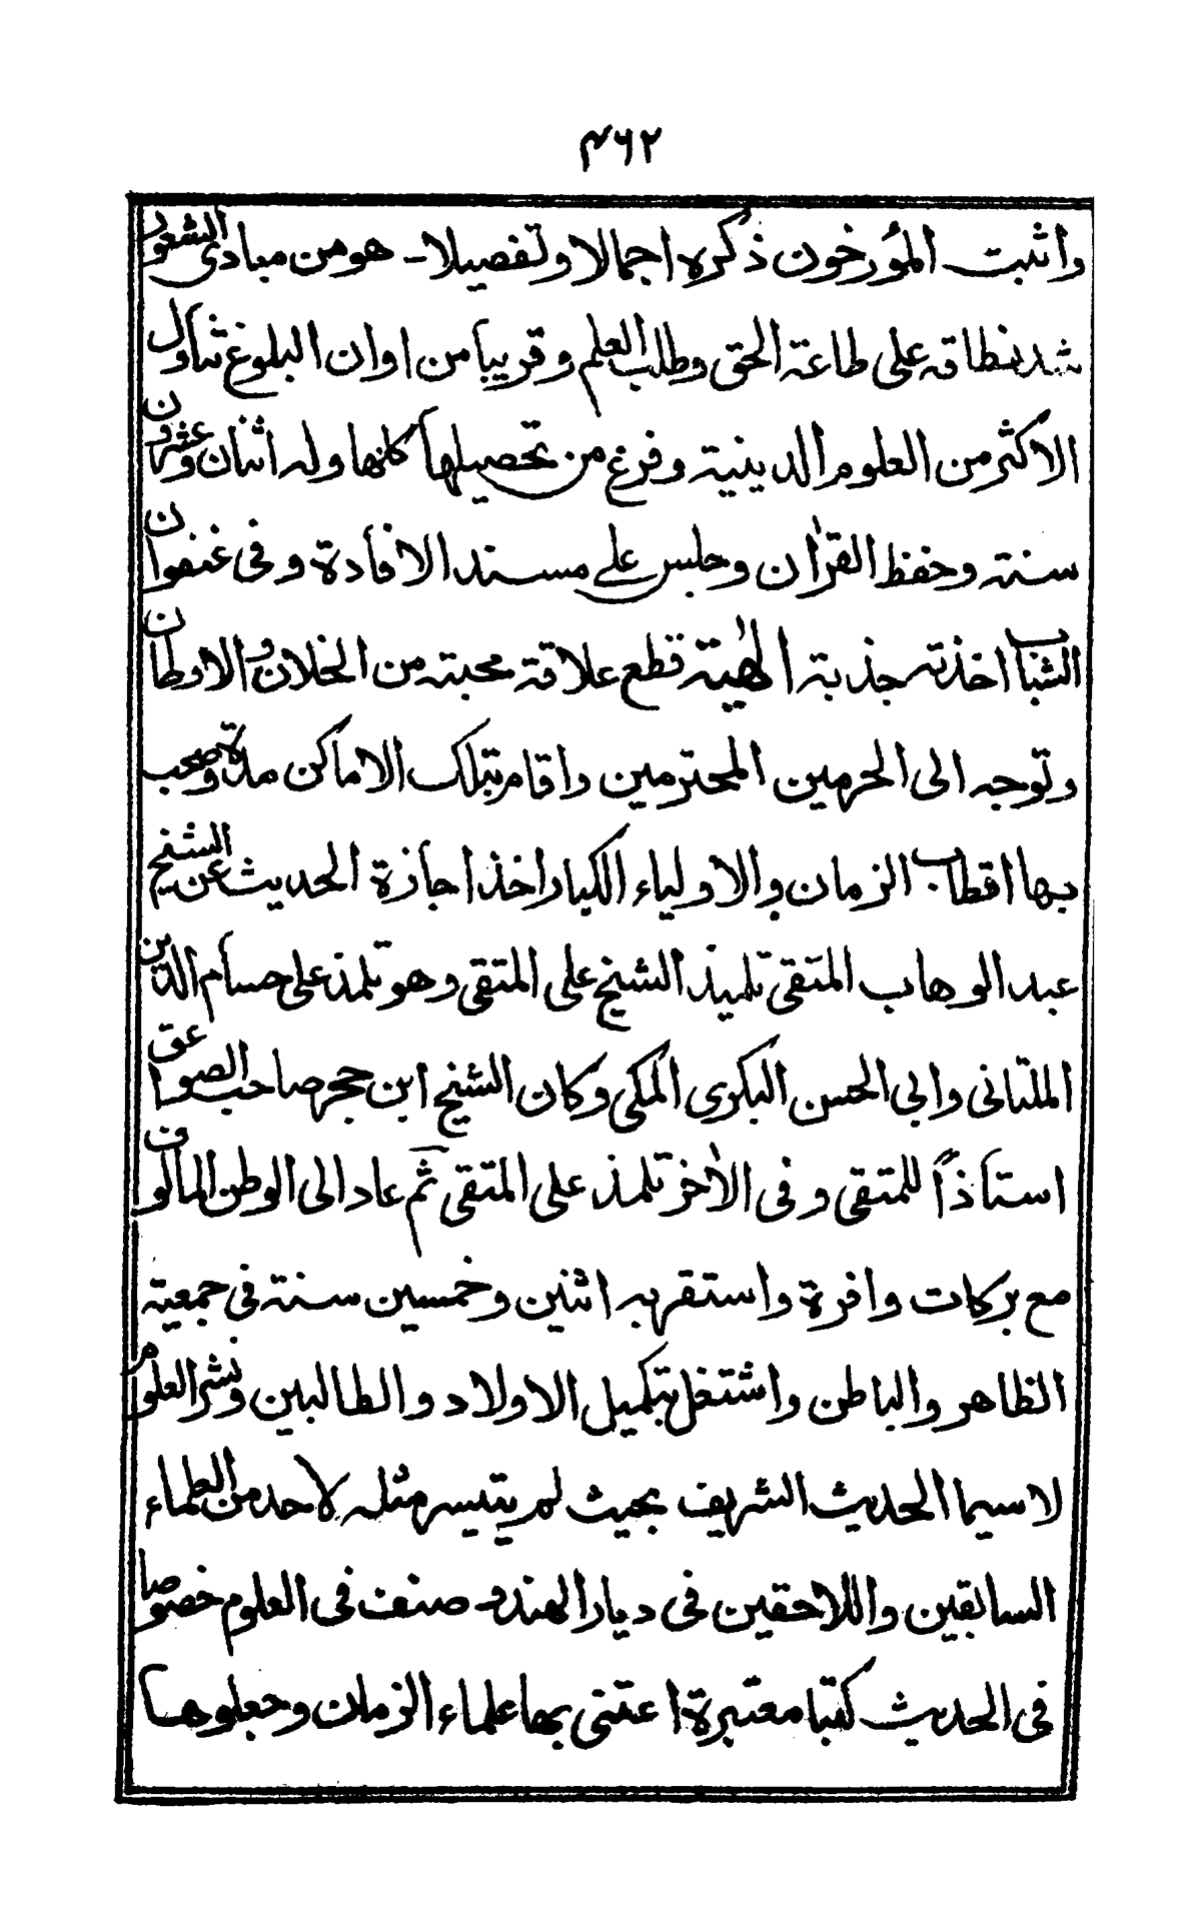 ۴۶۲
واثبت المؤرخون ذكره اجمالا وتفصيلا۔ هو من مبادى الشعور
شد نطاقه على طاعة الحق وطلب العلم وقريبا من اوان البلوغ تناول
الاكثر من العلوم الدينية وفرغ من تحصيلها كلها وله اثنان وعشرون
سنة وحفظ القراٰن وجلس على مسند الافادة وفى عنفوان
الشباب اخذته جذبة الٰهية قطع علاقة محبته من الخلان والاوطان
وتوجه الى الحرمين المحترمين واقام بتلك الاماكن مدة وصحب
بها اقطاب الزمان والاولياء الكبار اخذ اجازة الحديث عن الشيخ
عبد الوهاب المتقى تلميذ الشيخ على المتقى وهو تلمذ على حسام الدين
الملتانى وابي الحسن البكرى المكى وكان الشيخ ابن حجر صاحب الصواعق
استاذاً للمتقى وفى الاٰخر تلمذ على المتقى ثم عاد الى الوطن المالوف
مع بركات وافرة واستقر به اثنين وخمسين سنة فى جمعية
الظاهر والباطن واشتغل بتكميل الاولاد والطالبين ونشر العلوم
لا سيما الحديث الشريف بحيث لم يتيسر مثله لاحد من العلماء
السابقين واللاحقين فى ديار الهند وصنف فى العلوم خصوصا
فى الحديث كتبا معتبرة اعتنى بها علماء الزمان وجعلوها